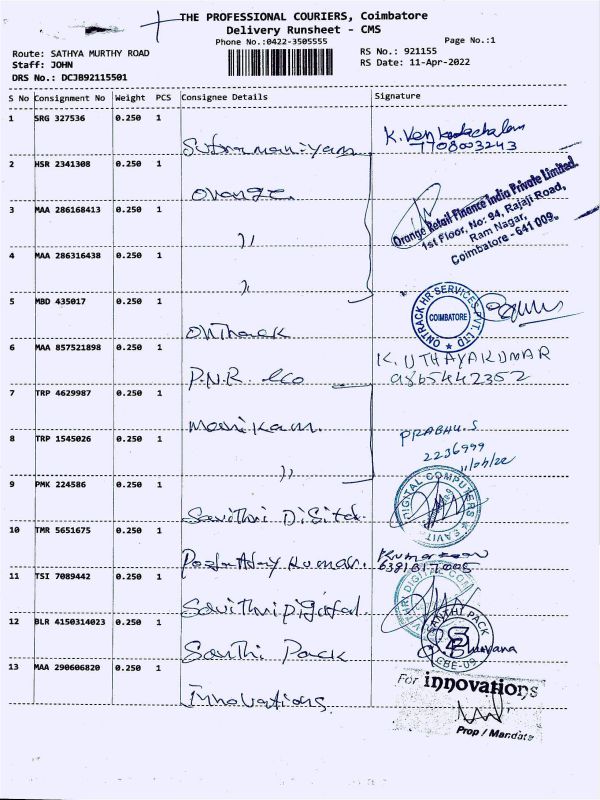 THE PROFESSIONAL COURIERS, Coimbatore
Delivery Runsheet - CMS
Phone No.:0422-3505555 Page No.:1
Route: SATHYA MURTHY ROAD RS No.: 921155
Staff: JOHN RS Date: 11-Apr-2022
DRS No.: DCJB92115501
S No Consignment No Weight PCS Consignee Details Signature
1 SRG 327536 0.250 1
K. Venkadachalam
7708003243
2 HSR 2341308 0.250 1
Orange
Orange Retail Finance India Private Limited.
1st Floor, No: 94, Rajaji Road,
Ram Nagar,
Coimbatore - 641 009.
3 MAA 286168413 0.250 1
''
4 MAA 286316438 0.250 1
''
5 MBD 435017 0.250 1
Onthack
ONTRACK HR SERVICES PVT. LTD
COIMBATORE
6 MAA 857521898 0.250 1
P.N.R. eco
K. UTHAYAKUMAR
9865442352
7 TRP 4629987 0.250 1
PRABHU.S
2236999
8 TRP 1545026 0.250 1
''
9 PMK 224586 0.250 1
Savithri Digital
DIGITAL COMPUTERS
10 TMR 5651675 0.250 1
Kumar
11 TSI 7089442 0.250 1
Savithri Digital.
DIGITAL COM
12 BLR 4150314023 0.250 1
Santhi Pack
SANTHI PACK
CBE-09
13 MAA 290606820 0.250 1
Innovations
For innovations
Prop / Mandate